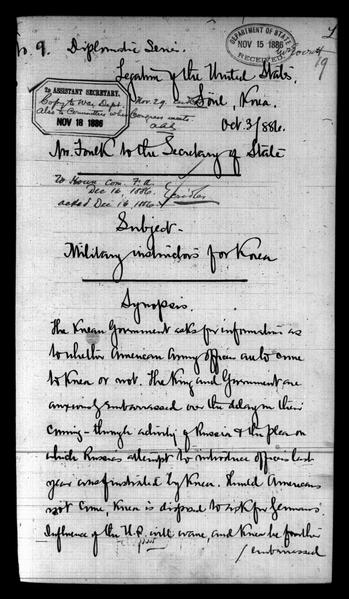 No. 9. Diplomatic Series.
DEPARTMENT OF STATE
NOV 15 1886
RECEIVED
Legation of the United States,
2D ASSISTANT SECRETARY.
Copy to War Dept. Nov. 29
Also to Committees when Congress meets
NOV 18 1886
Söul, Korea.
Oct. 3/886.
Mr. Foulk to the Secretary of State
To House Com. F.A.
Dec 16, 1886.
Dec 16, 1886.
Subject-
Military instructors for Korea
Synopsis.
The Korean Government asks for information as
to whether American Army officers are to come
to Korea or not. The King and Government are
anxiously embarrassed over the delay in their
coming - through activity of Russia & the plan on
which Russia's attempt to introduce officers last
year was frustrated by Korea. Should Americans
not come, Korea is disposed to ask for Germans.
Influence of the U.S. will wane, and Korea be further
/ embarrassed